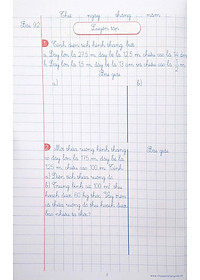 Thứ ngày tháng năm
Bài 92 Luyện tập
1 Tính diện tích hình thang, biết:
a. Đáy lớn là 27,5 m, đáy bé là 12,5 m, chiều cao là
b. Đáy lớn là 1,5 m, đáy bé là chiều cao là m
Bài giải
a) b)
2 Một thửa ruộng hình thang Bài giải
có đáy lớn là 175 m, đáy bé là
125 m, chiều cao 100 m. Tính:
a) Diện tích thửa ruộng đó.
b) Trung bình cứ 100 m² thu
hoạch được 60 kg thóc. Vậy năm
cả thửa ruộng đó thu hoạch được
bao nhiêu tạ thóc?